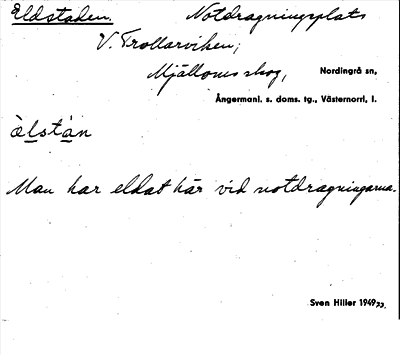 Eldstaden. Notdragningsplats
V. Trollarviken;
Mjälloms skog, Nordingrå sn,
Ångermanl. s. doms. tg., Västernorrl. l.
àlstàn
Man har eldat här vid notdragningarna.
Sven Hiller 1949